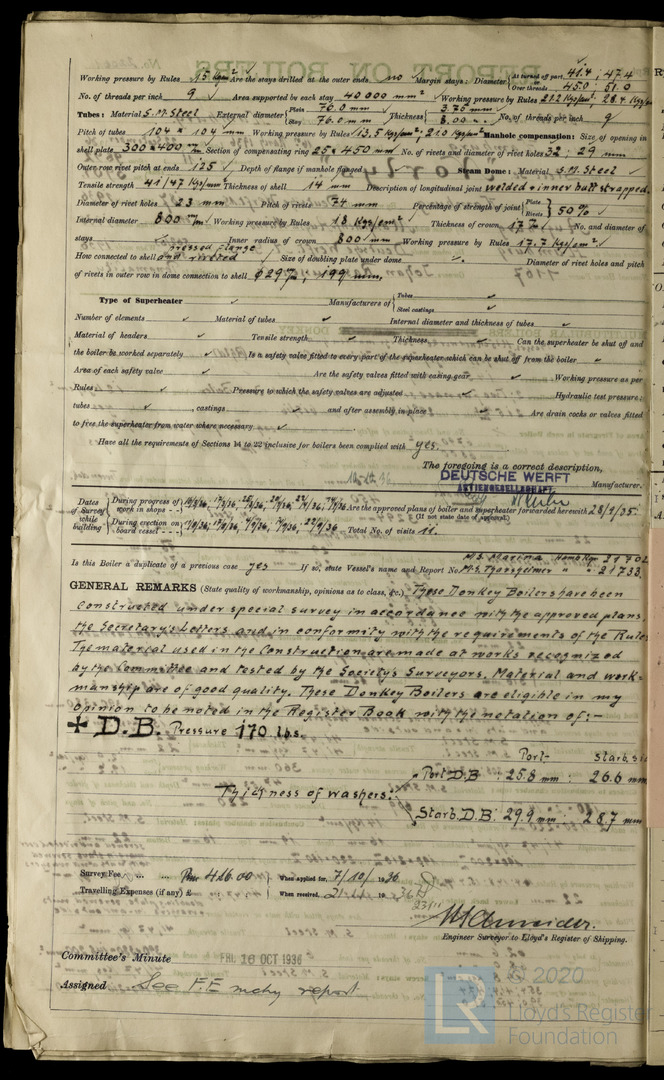 Working pressure by Rules 15 Kg/cm² Are the stays drilled at the outer ends no Margin stays: Diameter { At turned off part 41.4 ; 47.4
Over threads 45.0 ; 51.0
No. of threads per inch 9 Area supported by each stay 40000 mm² Working pressure by Rules 21.2 Kgs/cm², 28.4 Kgs/cm²
Tubes: Material S.M. Steel External diameter { Plain 76.0 mm Thickness { 3.75 mm No. of threads per inch 9
Stay 76.0 mm 8.00
Pitch of tubes 104 × 104 mm Working pressure by Rules 13.5 Kg/cm², 21.0 Kg/cm² Manhole compensation: Size of opening in
shell plate 300 × 400 mm Section of compensating ring 25 × 450 mm No. of rivets and diameter of rivet holes 32 ; 29 mm
Outer row rivet pitch at ends 125 Depth of flange if manhole flanged Steam Dome: Material S.M. Steel
Tensile strength 41/47 Kgs/mm² Thickness of shell 14 mm Description of longitudinal joint welded + inner butt strapped.
Diameter of rivets 23 mm Pitch of rivets 74 mm Percentage of strength of joint { Plate
Rivets } 50 %
Internal diameter 800 mm Working pressure by Rules 18 Kgs/cm² Thickness of crown 17 No. and diameter of
stays Inner radius of crown 800 mm Working pressure by Rules 17.7 Kgs/cm²
How connected to shell pressed flange and riveted Size of doubling plate under dome Diameter of rivet holes and pitch
of rivets in outer row in dome connection to shell ϕ 29 ; 199 mm.
Type of Superheater Manufacturers of { Tubes
Steel castings
Number of elements Material of tubes Internal diameter and thickness of tubes
Material of headers Tensile strength Thickness Can the superheater be shut off and
the boiler be worked separately Is a safety valve fitted to every part of the superheater which can be shut off from the boiler
Area of each safety valve Are the safety valves fitted with easing gear Working pressure as per
Rules Pressure to which the safety valves are adjusted Hydraulic test pressure:
tubes , castings and after assembly in place Are drain cocks or valves fitted
to free the superheater from water where necessary
Have all the requirements of Sections 14 to 22 inclusive for boilers been complied with yes.
The foregoing is a correct description,
DEUTSCHE WERFT
AKTIENGESELLSCHAFT Manufacturer.
Dates of Survey while building { During progress of work in shops - - Are the approved plans of boiler and superheater forwarded herewith 28/9/35.
(If not state date of approval.)
During erection on board vessel - - - Total No. of visits 11.
Is this Boiler a duplicate of a previous case yes If so, state Vessel's name and Report No. M.S. Marina Hamb Rpt 21702
M.S. Thorshelmer " " 21733.
GENERAL REMARKS (State quality of workmanship, opinions as to class, &c.) These Donkey Boilers have been
constructed under special survey in accordance with the approved plans,
the Secretary's Letters and in conformity with the requirements of the Rules
The material used in the Construction are made at works recognized
by the Committee and tested by the Society's Surveyors. Material and work-
manship are of good quality. These Donkey Boilers are eligible in my
opinion to be noted in the Register Book with the notation of:-
✠ D.B. Pressure 170 lbs.
Port- Starb. side
Thickness of washers: { Port D.B : 25.8 mm : 26.6 mm
Starb. D.B: 29.9 mm : 28.7 mm
Survey Fee ... ... 416.00 } When applied for, 7/10/1936
Travelling Expenses (if any) £ } When received, 1936
Engineer Surveyor to Lloyd's Register of Shipping.
Committee's Minute FRI. 16 OCT 1936
Assigned See F.E. mchy report
© 2020
Lloyd's Register
Foundation